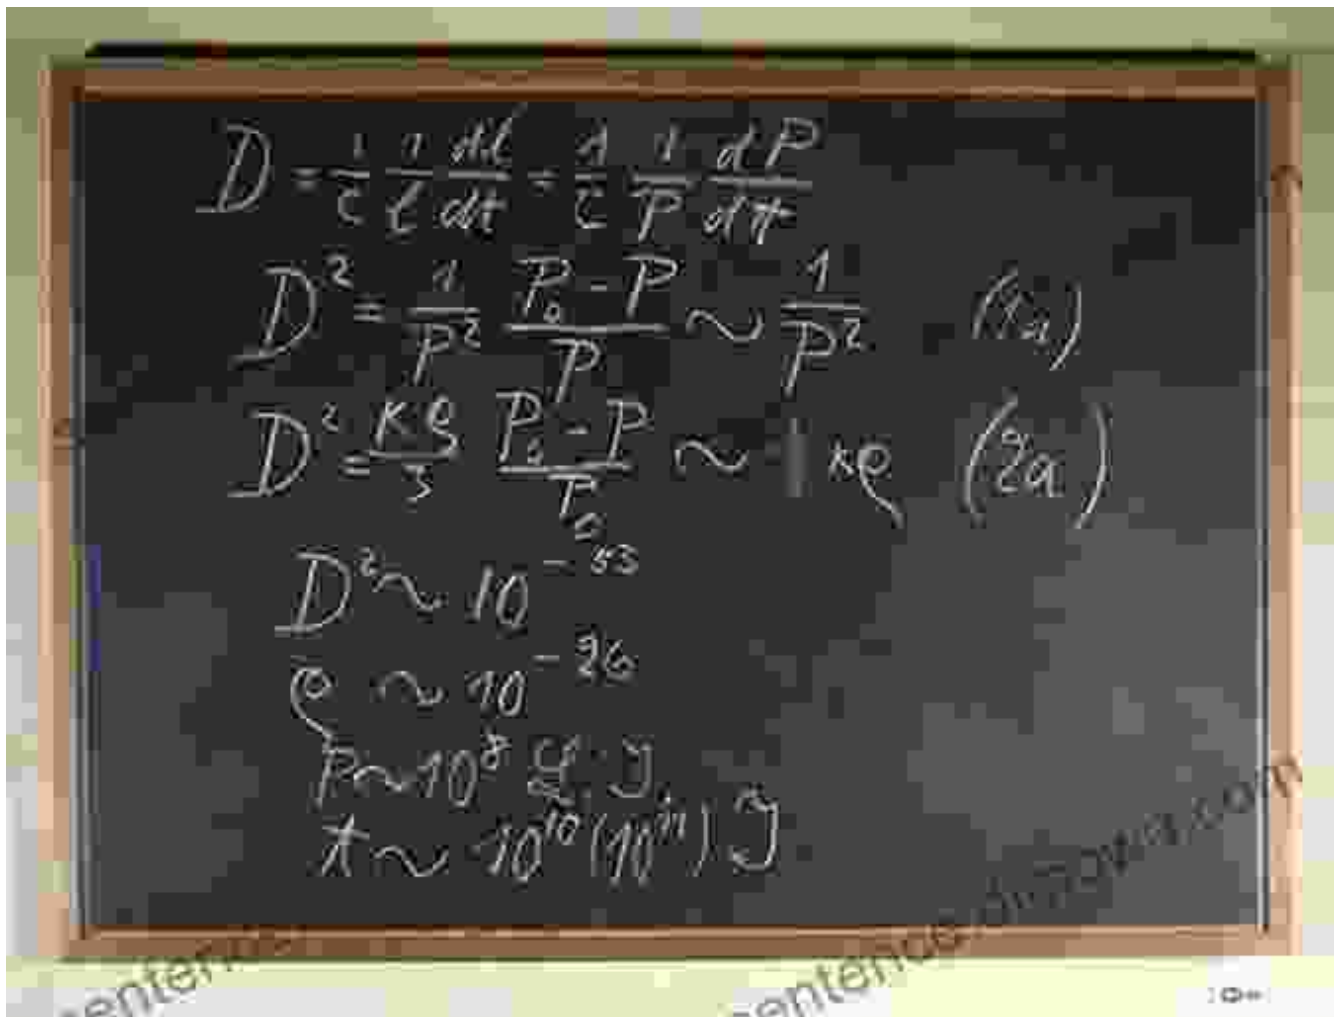 D = 1/c 1/l dl/dt = 1/c 1/P dP/dt
D² = 1/P² P₀-P/P ~ 1/P² (1a)
D² = κρ/3 P₀-P/P₀ ~ κρ (2a)
D² ~ 10⁻⁵³
ρ ~ 10⁻²⁶
P ~ 10⁸ L. J.
t ~ 10¹⁰(10¹¹) J